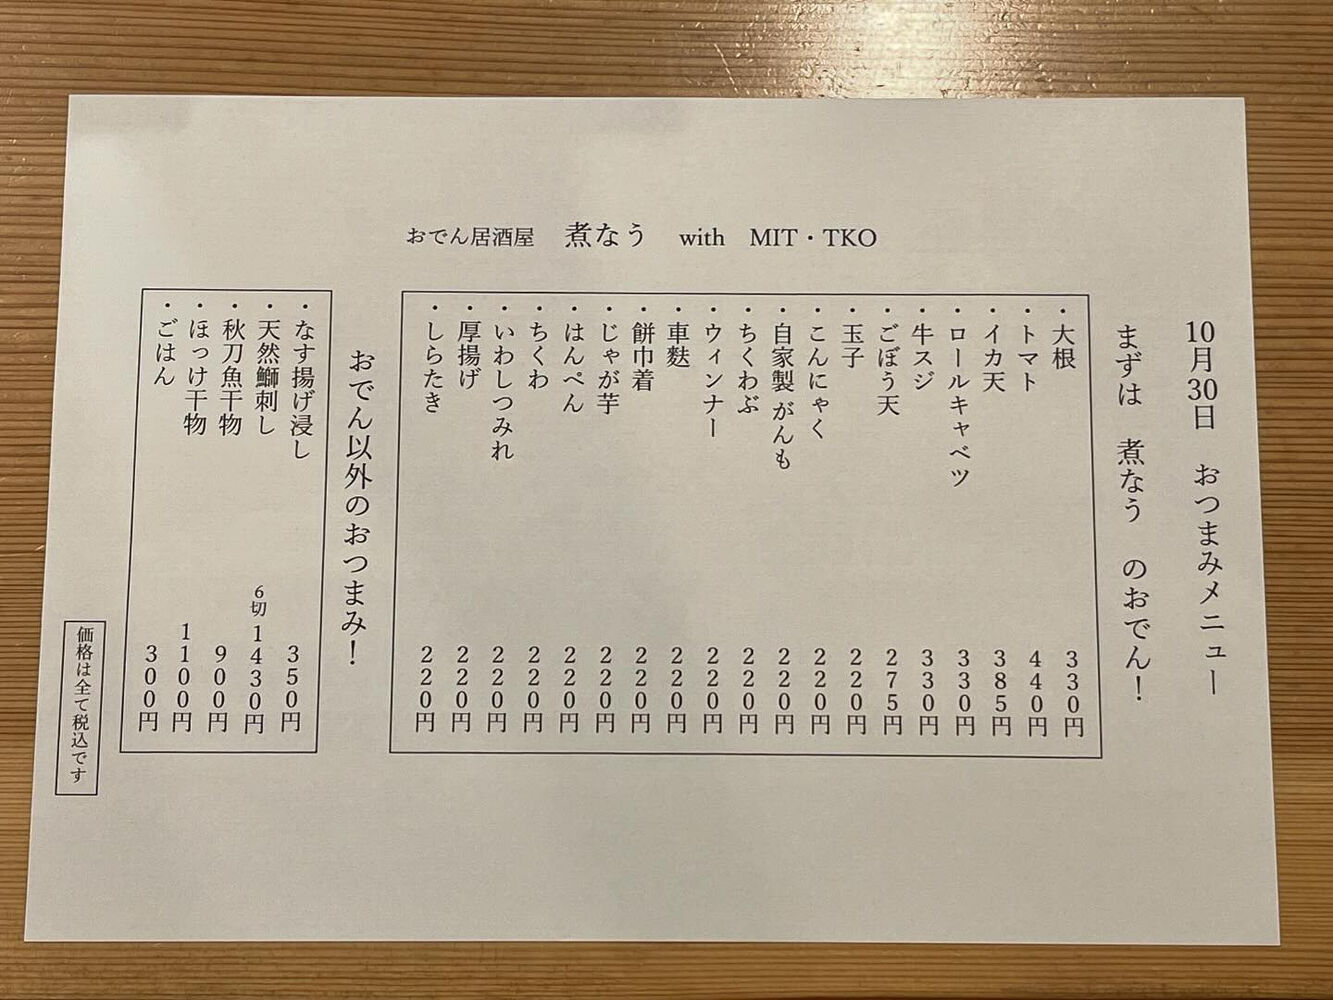 おでん居酒屋 煮なう with MIT・TKO
10月30日 おつまみメニュー
まずは 煮なう のおでん！
・大根 330円
・トマト 440円
・イカ天 385円
・ロールキャベツ 330円
・牛スジ 330円
・ごぼう天 275円
・玉子 220円
・こんにゃく 220円
・自家製 がんも 220円
・ちくわぶ 220円
・ウィンナー 220円
・車麩 220円
・餅巾着 220円
・じゃが芋 220円
・はんぺん 220円
・ちくわ 220円
・いわしつみれ 220円
・厚揚げ 220円
・しらたき 220円
おでん以外のおつまみ！
・なす揚げ浸し 350円
・天然鰤刺し 6切 1430円
・秋刀魚干物 900円
・ほっけ干物 1100円
・ごはん 300円
価格は全て税込です